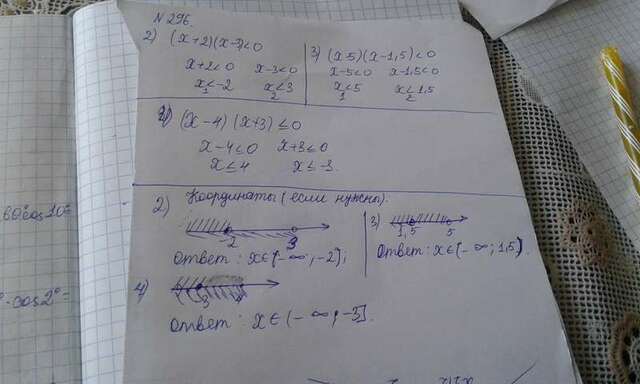 N 296.
2) (x+2)(x-3)<0
x+2<0 x-3<0
x<-2 x<3
1 2
3) (x-5)(x-1,5)<0
x-5<0 x-1,5<0
x<5 x<1,5
1 2
4) (x-4)(x+3)≤0
x-4≤0 x+3≤0
x≤4 x≤-3.
Координаты (если нужны).
2)
-2 3
Ответ: x∈[-∞; -2];
3)
1,5 5
Ответ: x∈(-∞; 1,5).
4)
-3 4
Ответ: x∈(-∞; -3].
60°cos10°=
-cos2°=